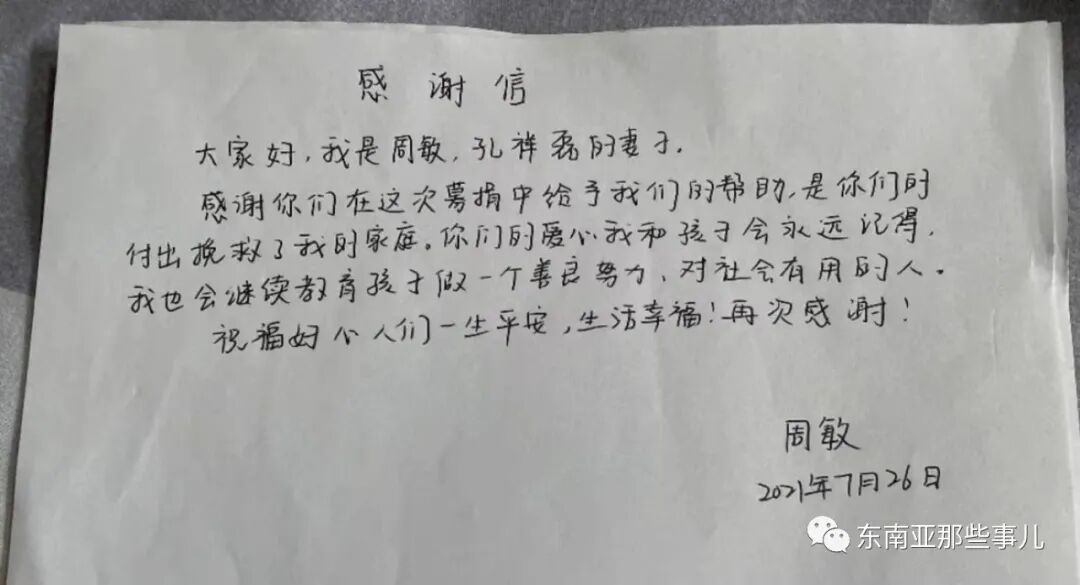 感谢信
大家好，我是周敏，孔祥磊的妻子。
感谢你们在这次募捐中给予我们的帮助，是你们的
付出挽救了我的家庭。你们的爱心我和孩子会永远记得，
我也会继续教育孩子做一个善良努力、对社会有用的人。
祝福好心人们一生平安，生活幸福！再次感谢！
周敏
2021年7月26日
东南亚那些事儿